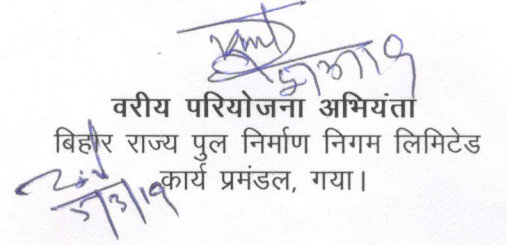 वरीय परियोजना अभियंता
बिहार राज्य पुल निर्माण निगम लिमिटेड
कार्य प्रमंडल, गया।
5/3/19